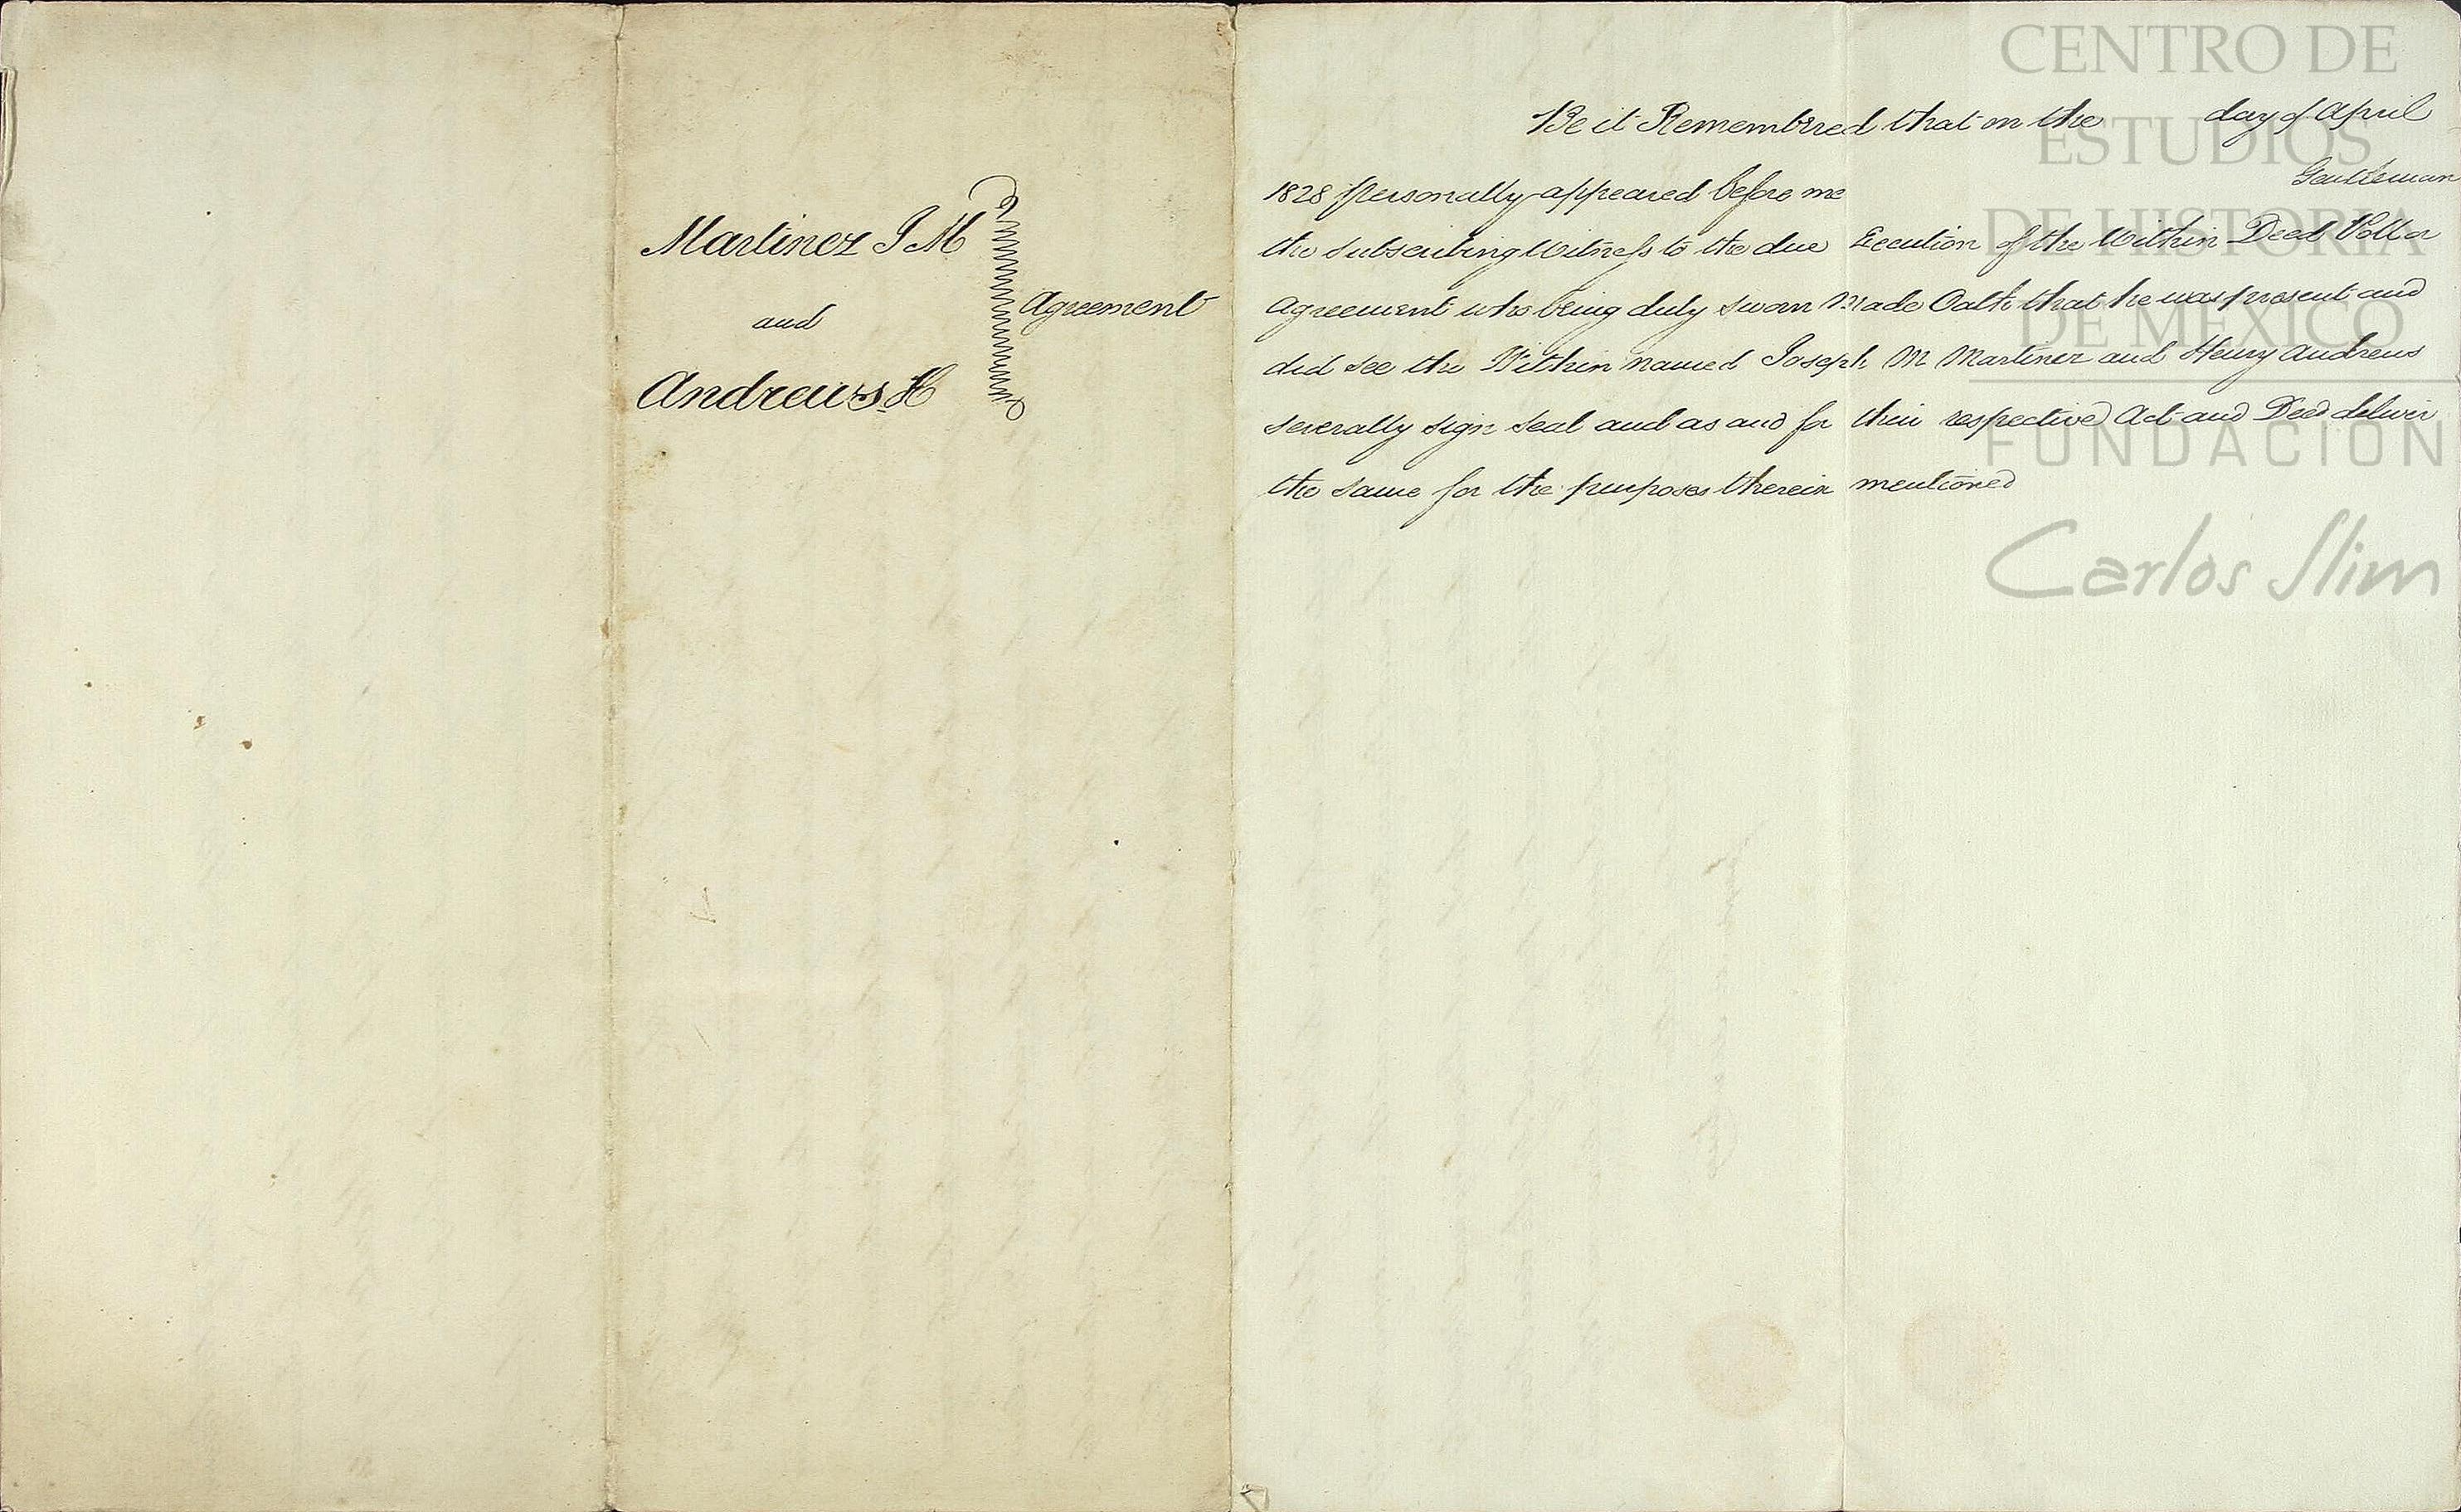 Martinez J M
and
Andrews H
Agreement
Be it Remembred that on the day of April
1828 personally appeared before me Gentleman
the subscribing Witness to the due Execution of the Within Deed Poll or
Agreement who being duly sworn Made Oath that he was present and
did see the Within named Joseph M Martinez and Henry Andrews
severally sign seal and as and for their respective Act and Deed deliver
the same for the purposes therein mentioned
CENTRO DE
ESTUDIOS
DE HISTORIA
DE MÉXICO
FUNDACIÓN
Carlos Slim